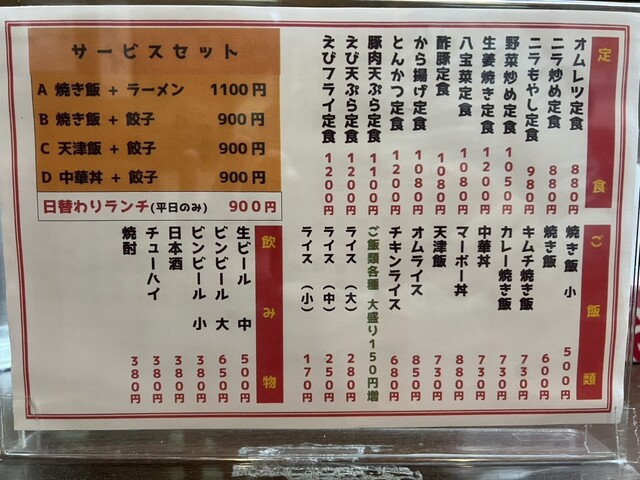 サービスセット
A 焼き飯 + ラーメン 1100円
B 焼き飯 + 餃子 900円
C 天津飯 + 餃子 900円
D 中華丼 + 餃子 900円
日替わりランチ(平日のみ) 900円
定食
オムレツ定食 880円
ニラ炒め定食 880円
ニラもやし定食 980円
野菜炒め定食 1050円
生姜焼き定食 1200円
八宝菜定食 1080円
酢豚定食 1080円
から揚げ定食 1080円
とんかつ定食 1200円
豚肉天ぷら定食 1100円
えび天ぷら定食 1200円
えびフライ定食 1200円
ご飯類
焼き飯 小 500円
焼き飯 600円
キムチ焼き飯 730円
カレー焼き飯 730円
中華丼 730円
マーボー丼 880円
天津飯 730円
オムライス 850円
チキンライス 680円
ご飯類各種 大盛り150円増
ライス (大) 280円
ライス (中) 250円
ライス (小) 170円
飲み物
生ビール 中 500円
ビンビール 大 650円
ビンビール 小 380円
日本酒 380円
チューハイ 380円
焼酎 380円